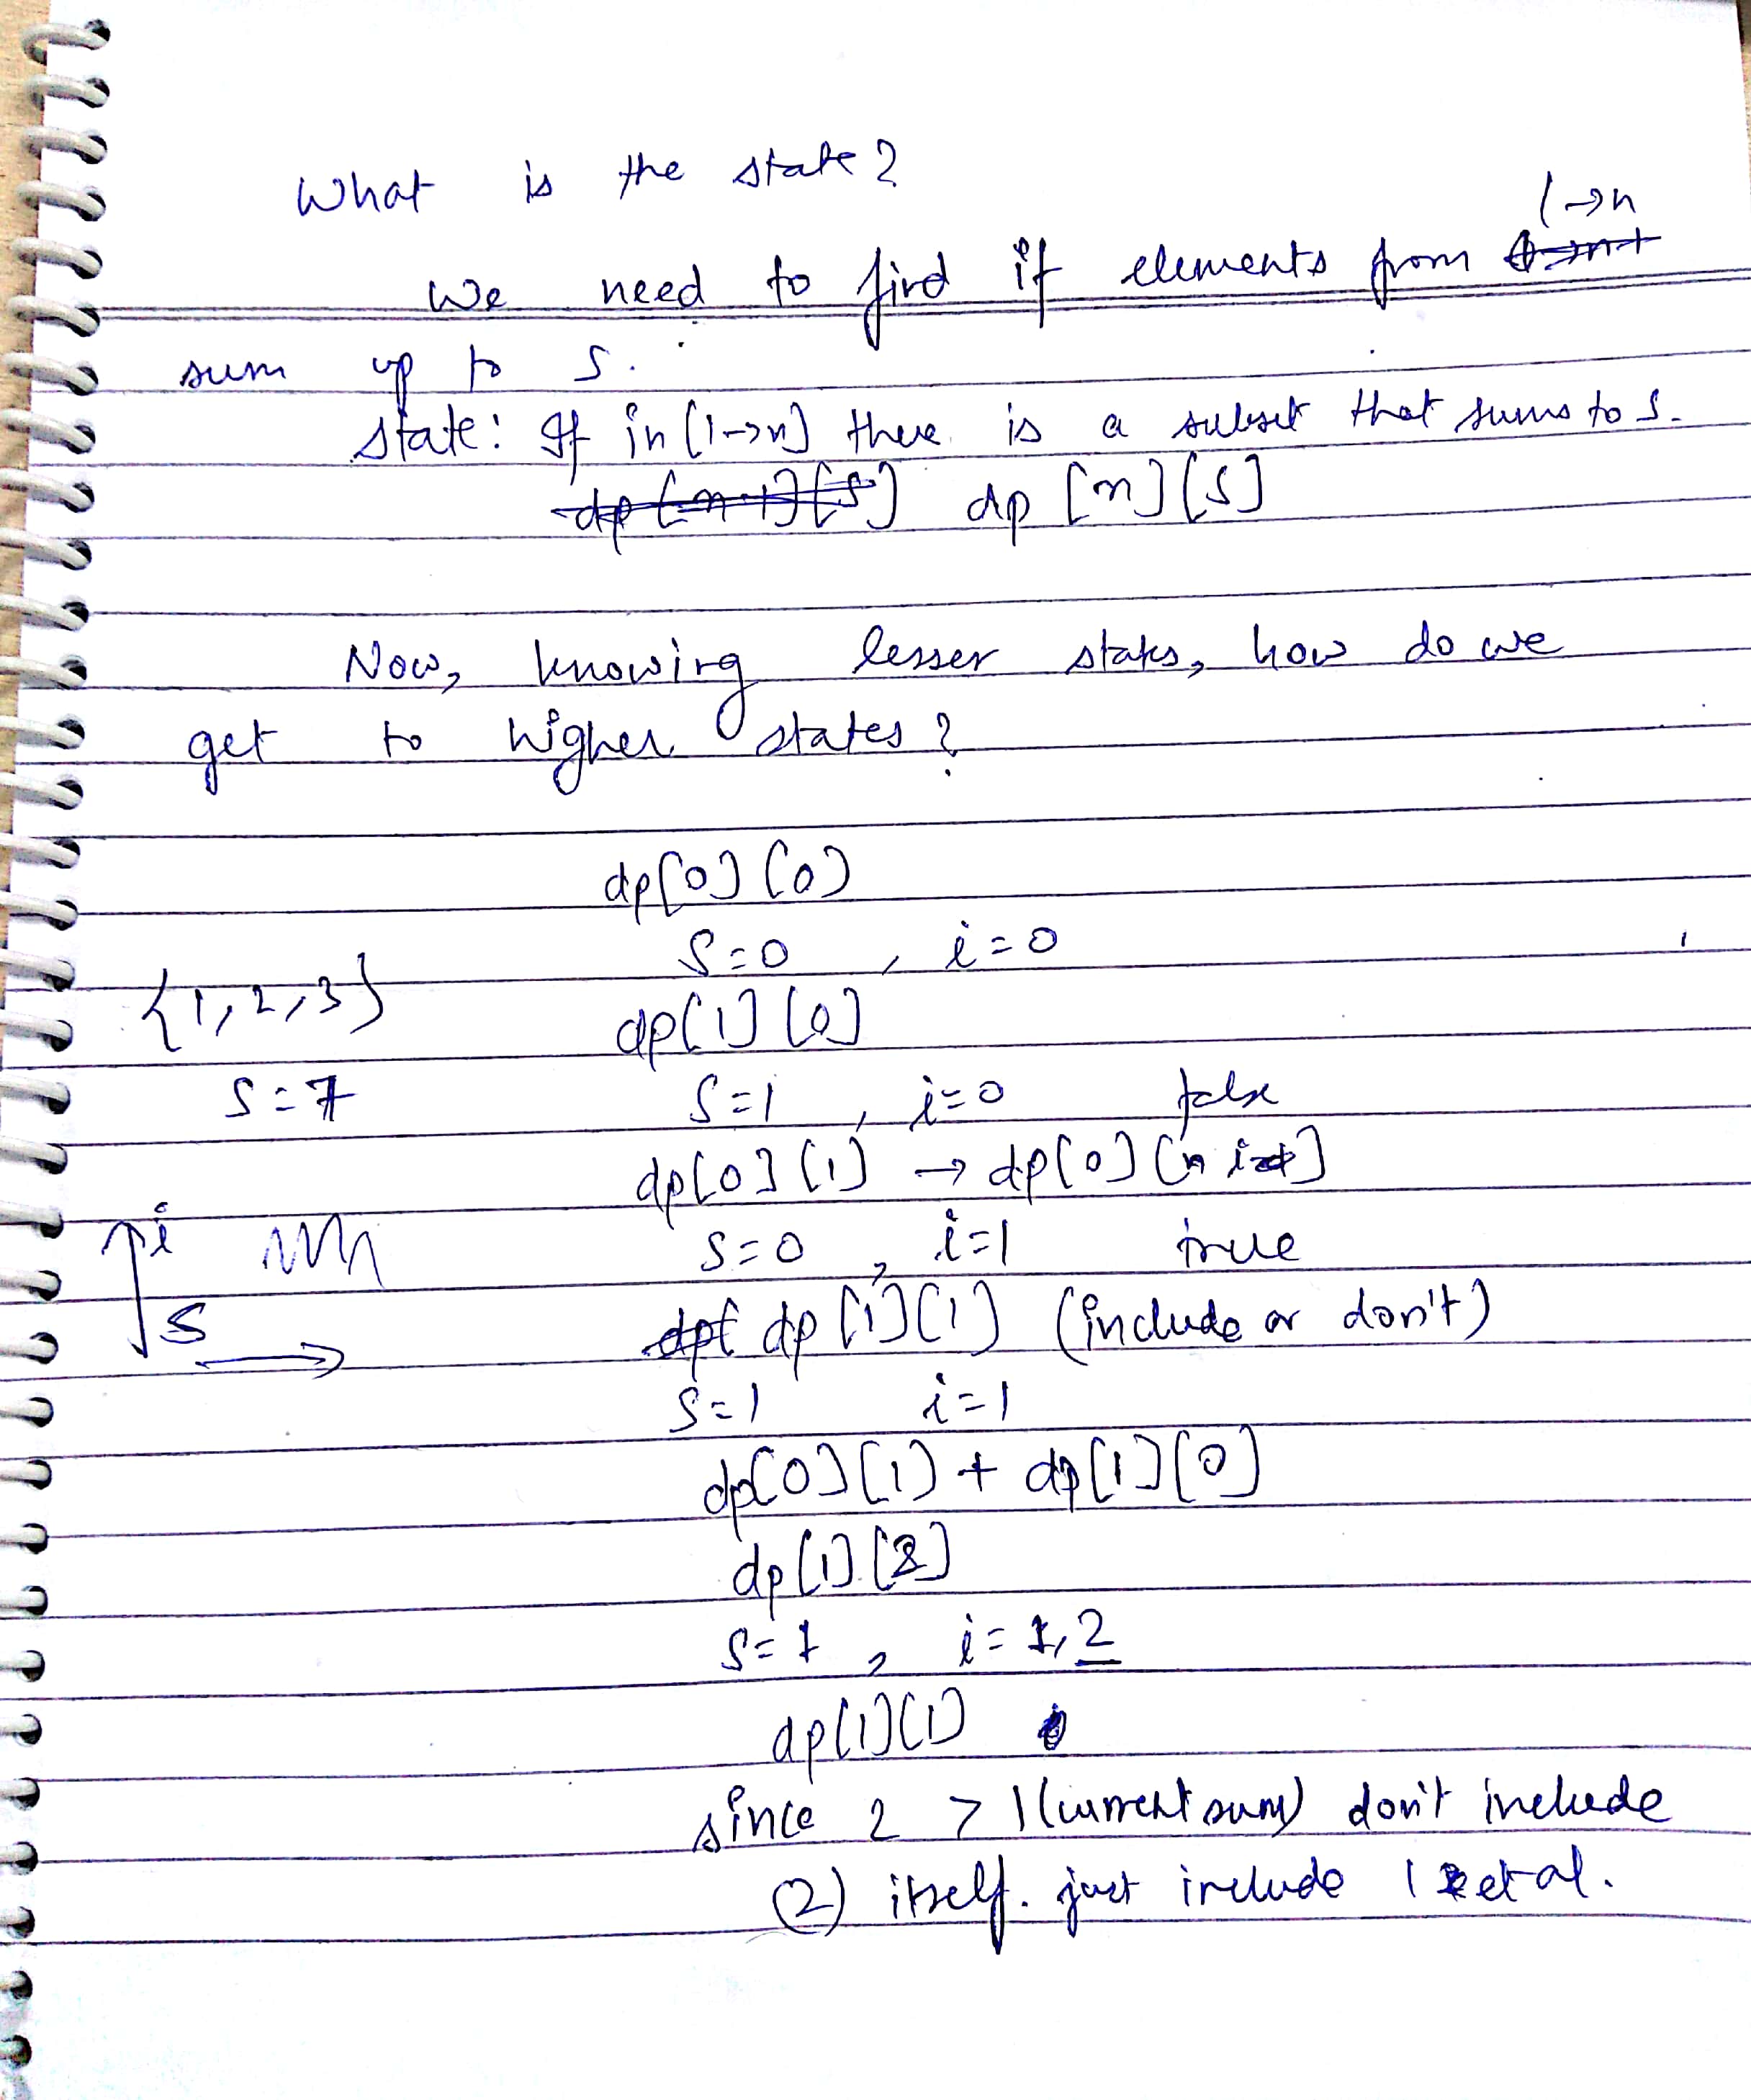 What is the state?
1→n
We need to find if elements from
sum up to S.
State: If in [1→n] there is a subset that sums to S.
dp[n-1][S] dp [n][S]
Now, knowing lesser states, how do we
get to higher states?
dp[0][0]
S=0 , i=0
{1,2,3}
dp[1][0]
S=7
S=1 , i=0 false
dp[0][1] → dp[0][n]
i
S=0 , i=1 true
S
dp[ dp[1][1] (include or don't)
S=1 i=1
dp[0][1] + dp[1][0]
dp[1][2]
S=1 , i=1,2
dp[1][1]
since 2 > 1(current sum) don't include
(2) itself. just include 1 et al.